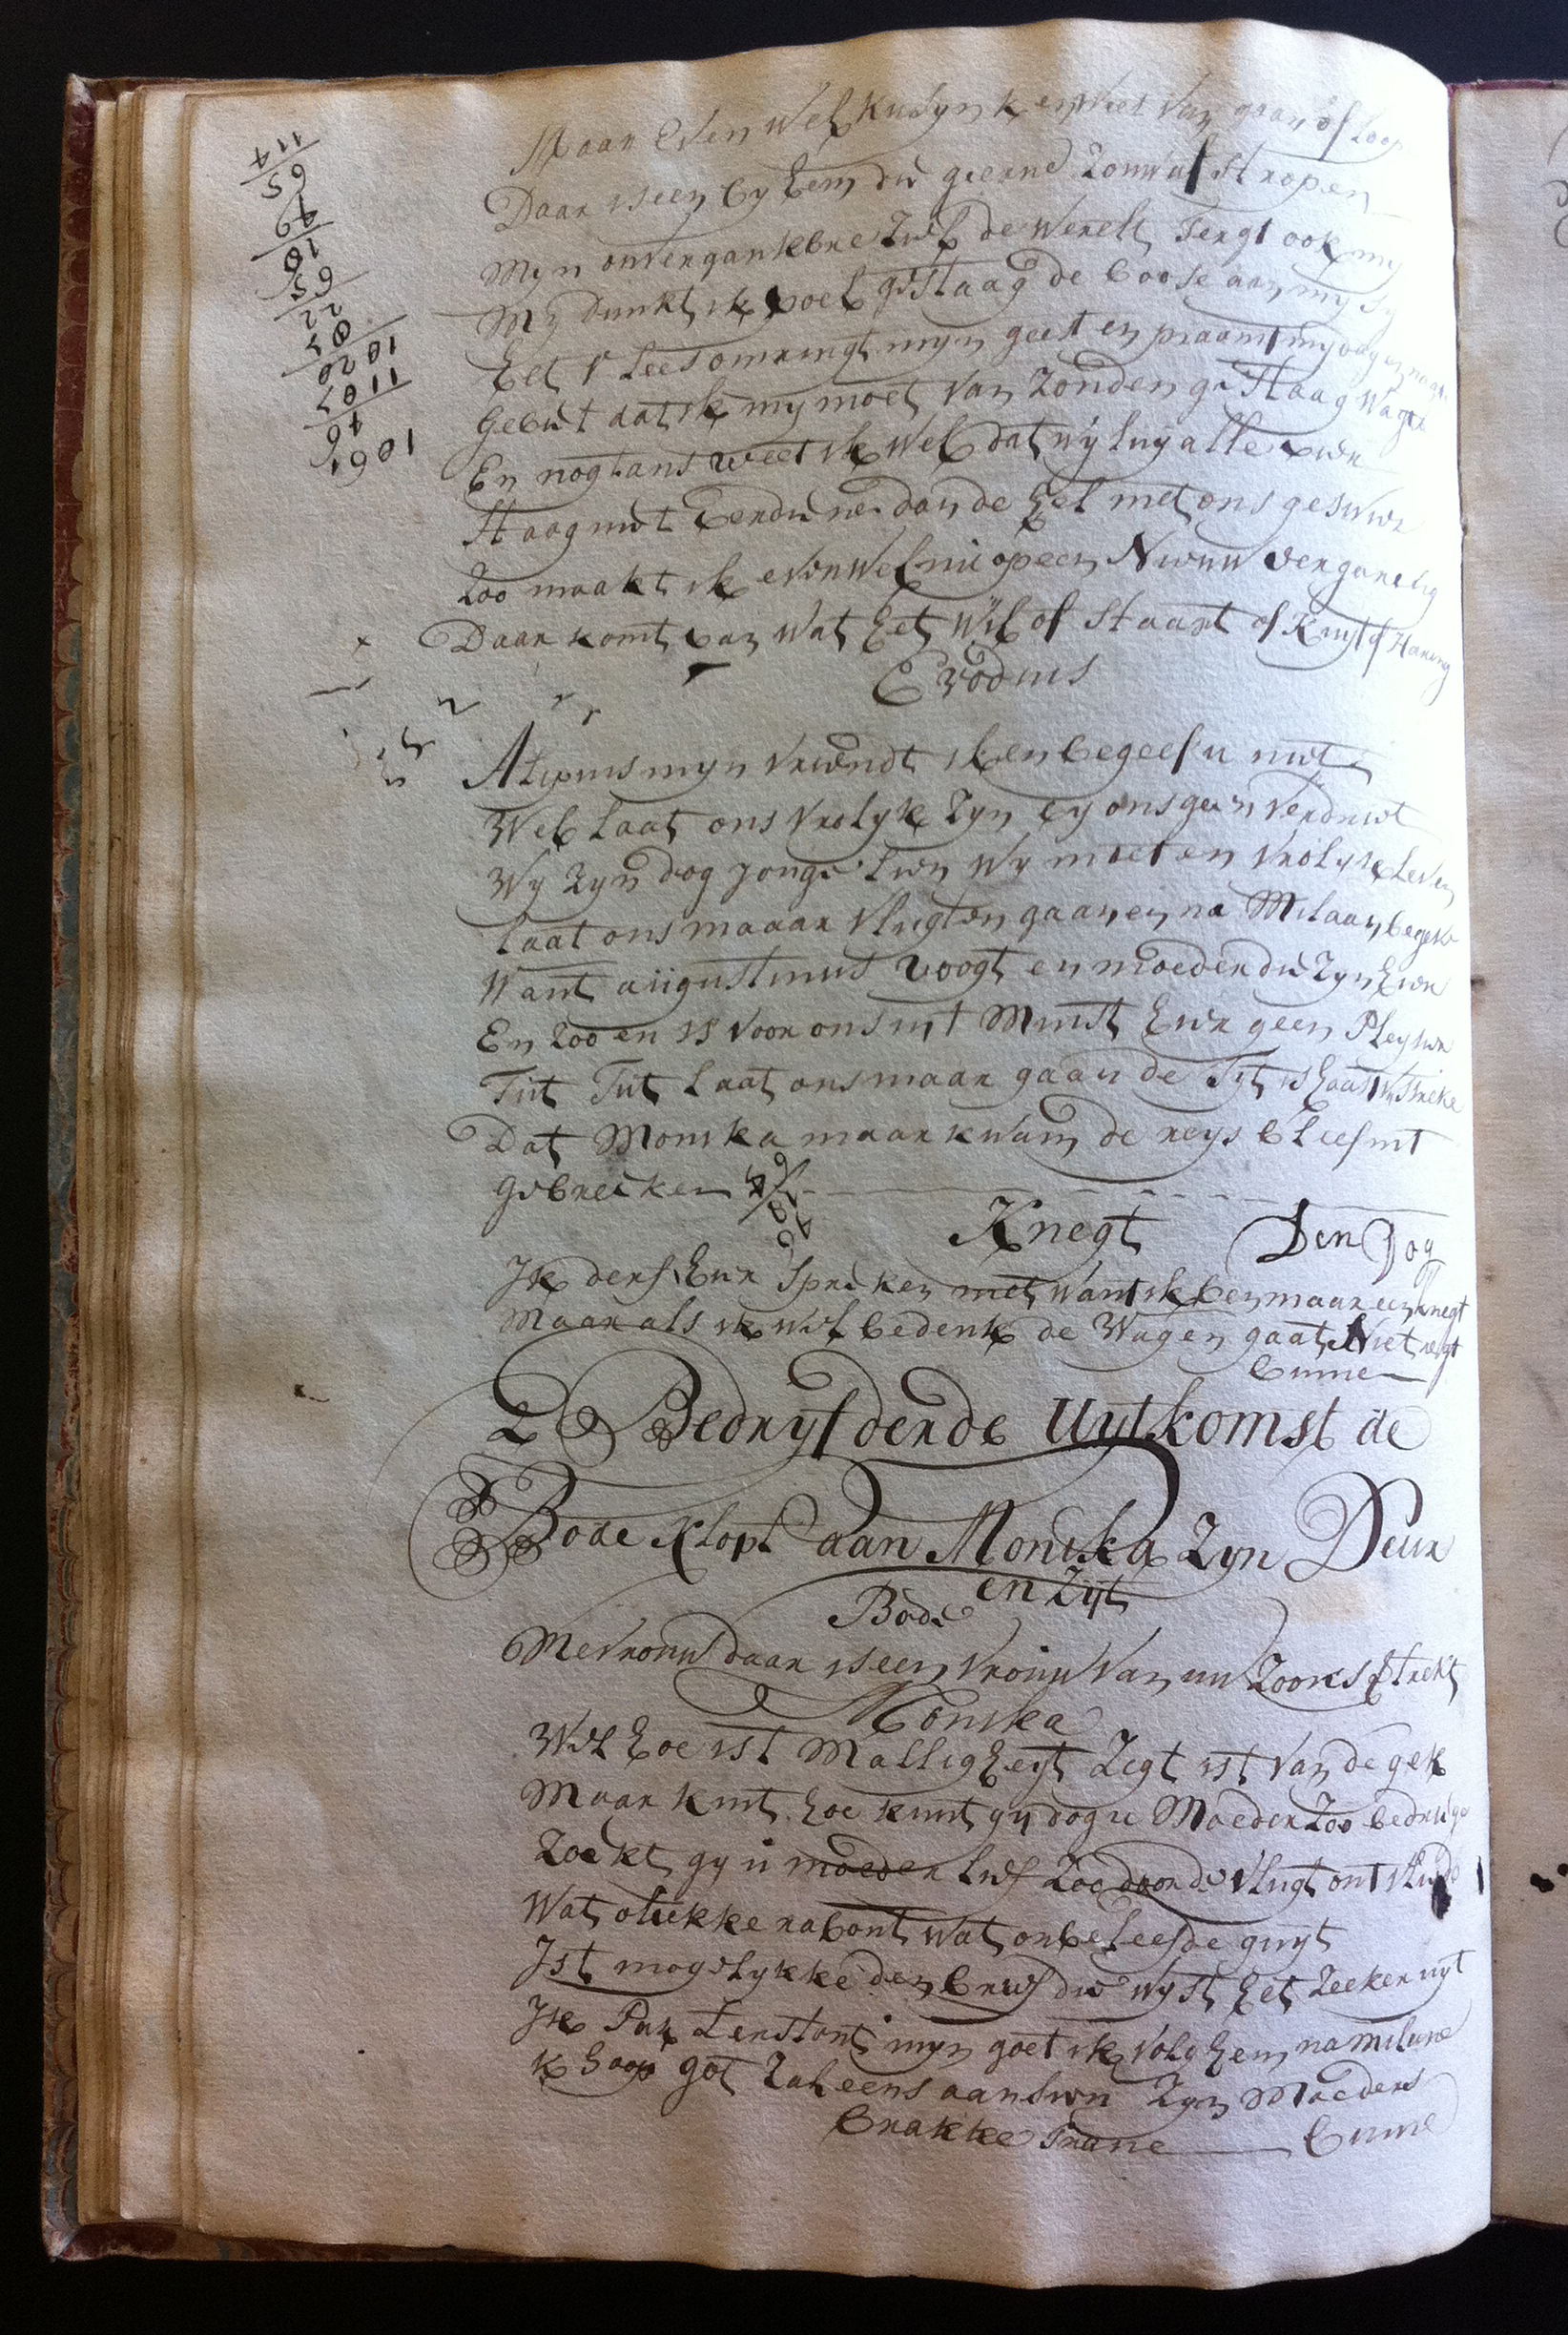 Maar Even wel kusyn k en Niet van gaan of Loop
Daar is een by hem die geerne Zou wat stropen
Myn onvergankbre Ziel de Werelt Tergt ook my
My Dunkt ik voel gestaag de boose aan my sy
het vlees omringt myn geest en praamt myn
Gebiet dat ik my moet van Zonden gestaag Wagt
En nogtans weet ik Wel dat wy luy alle
Staag niet Eerdre dan de hel met ons
Zoo maakt ik even Wel nu op een Nieuw vergaring
Daar komt van Wat het Wil of Staart of Kuyt of Haring
Alipius myn vriendt ik en begeef u niet
Wel Laat ons vrolyk Zyn by ons geen verdriet
Wy Zyn dog jonge lien Wy moeten vrolyk Leven
Laat ons maaar vlugten gaan en na Milaan begeve
Want augustinus voogt en moeder die Zyn hier
En Zoo en is voor ons int Minst hier geen Pleysier
Tut Tut Laat ons maar gaan de Tyt is haast
Dat Monika maar kwam de reys bleef int
gebreeken
Knegt Den Dog
Ik derf hier Spreken niet Want ik ben maar een knegt
Maar als ik wel bedenk de Wagen gaat Niet regt
binne
2 De Bedryf derde Uytkomst de
Bode Klopt aan Monika Zyn Deur
en Zyt
Bode
Mevrouw daar is een vrouw van uw Zoon
Monika
Wel hoe ist Malligheyt Zegt ist van de gek
Maar kint hoe kunt gy dog u Moeder Zoo bedrige
Zoekt gy u moeder lief Zoo door de vlugt ontvlied
Wat olikke rabout Wat onbeleefde guyt
Ist mogelykke den brief die wyst het Zeeker uyt
Ik Pak terstont myn goet ik volg hem na milane
k hoop got Zal eens aansien Zyn Moeders
brakke Trane binne
114
65
49
10
65
22
1061